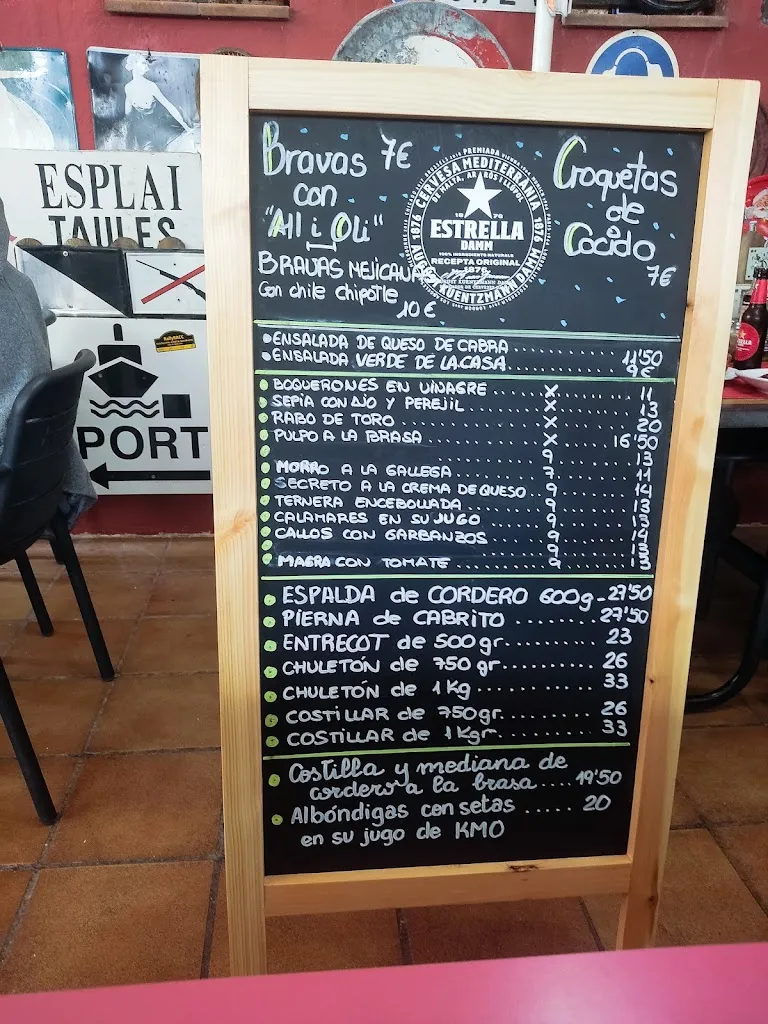 ESPLAI
TAULES
RallyRACC
PORT
Bravas 7€
con
"All i Oli"
BRAVAS MEJICANAS
Con chile chipotle
10€
CERVESA MEDITERRÀNIA
DE MALTA, ARRÒS I LLÚPOL
1876
1876
ESTRELLA
DAMM
100% INGREDIENTS NATURALS
RECEPTA ORIGINAL
1876
AUGUST KUENTZMANN DAMM
Croquetas
de
Cocido
7€
ENSALADA DE QUESO DE CABRA ........ 11'50
ENSALADA VERDE DE LA CASA ........ 9€
BOQUERONES EN VINAGRE X ........ 11
SEPIA CON AJO Y PEREJIL X ........ 13
RABO DE TORO X ........ 20
PULPO A LA BRASA X ........ 16'50
9 ........ 13
MORRO A LA GALLEGA 7 ........ 11
SECRETO A LA CREMA DE QUESO 9 ........ 14
TERNERA ENCEBOLLADA 9 ........ 13
CALAMARES EN SU JUGO 9 ........ 13
CALLOS CON GARBANZOS 9 ........ 14
9 ........ 13
MAGRA CON TOMATE 9 ........ 13
ESPALDA de CORDERO 600g - 27'50
PIERNA de CABRITO ........ 27'50
ENTRECOT de 500 gr ........ 23
CHULETÓN de 750 gr ........ 26
CHULETÓN de 1 Kg ........ 33
COSTILLAR de 750gr ........ 26
COSTILLAR de 1 Kgr ........ 33
Costilla y mediana de
cordero a la brasa .... 19'50
Albóndigas con setas ..... 20
en su jugo de KMO